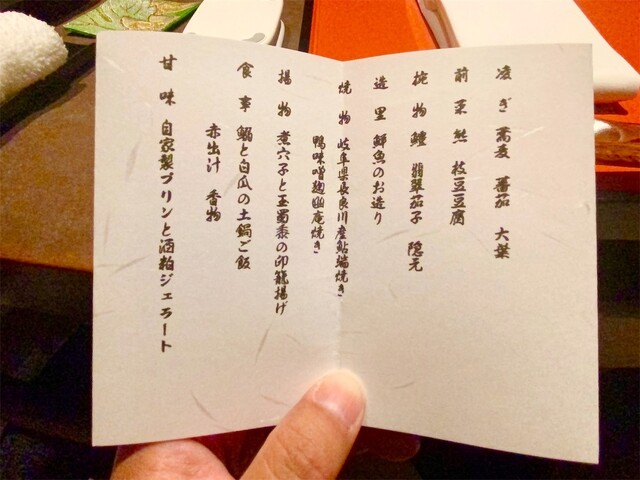 凌ぎ 蕎麦 蕃茄 大葉
前菜 鮑 枝豆豆腐
椀物 鱧 翡翠茄子 隠元
造里 鮮魚のお造り
焼物 岐阜県長良川産鮎塩焼き
鴨味噌麹幽庵焼き
揚物 煮穴子と玉蜀黍の印籠揚げ
食事 鰯と白瓜の土鍋ご飯
赤出汁 香物
甘味 自家製プリンと酒粕ジェラート